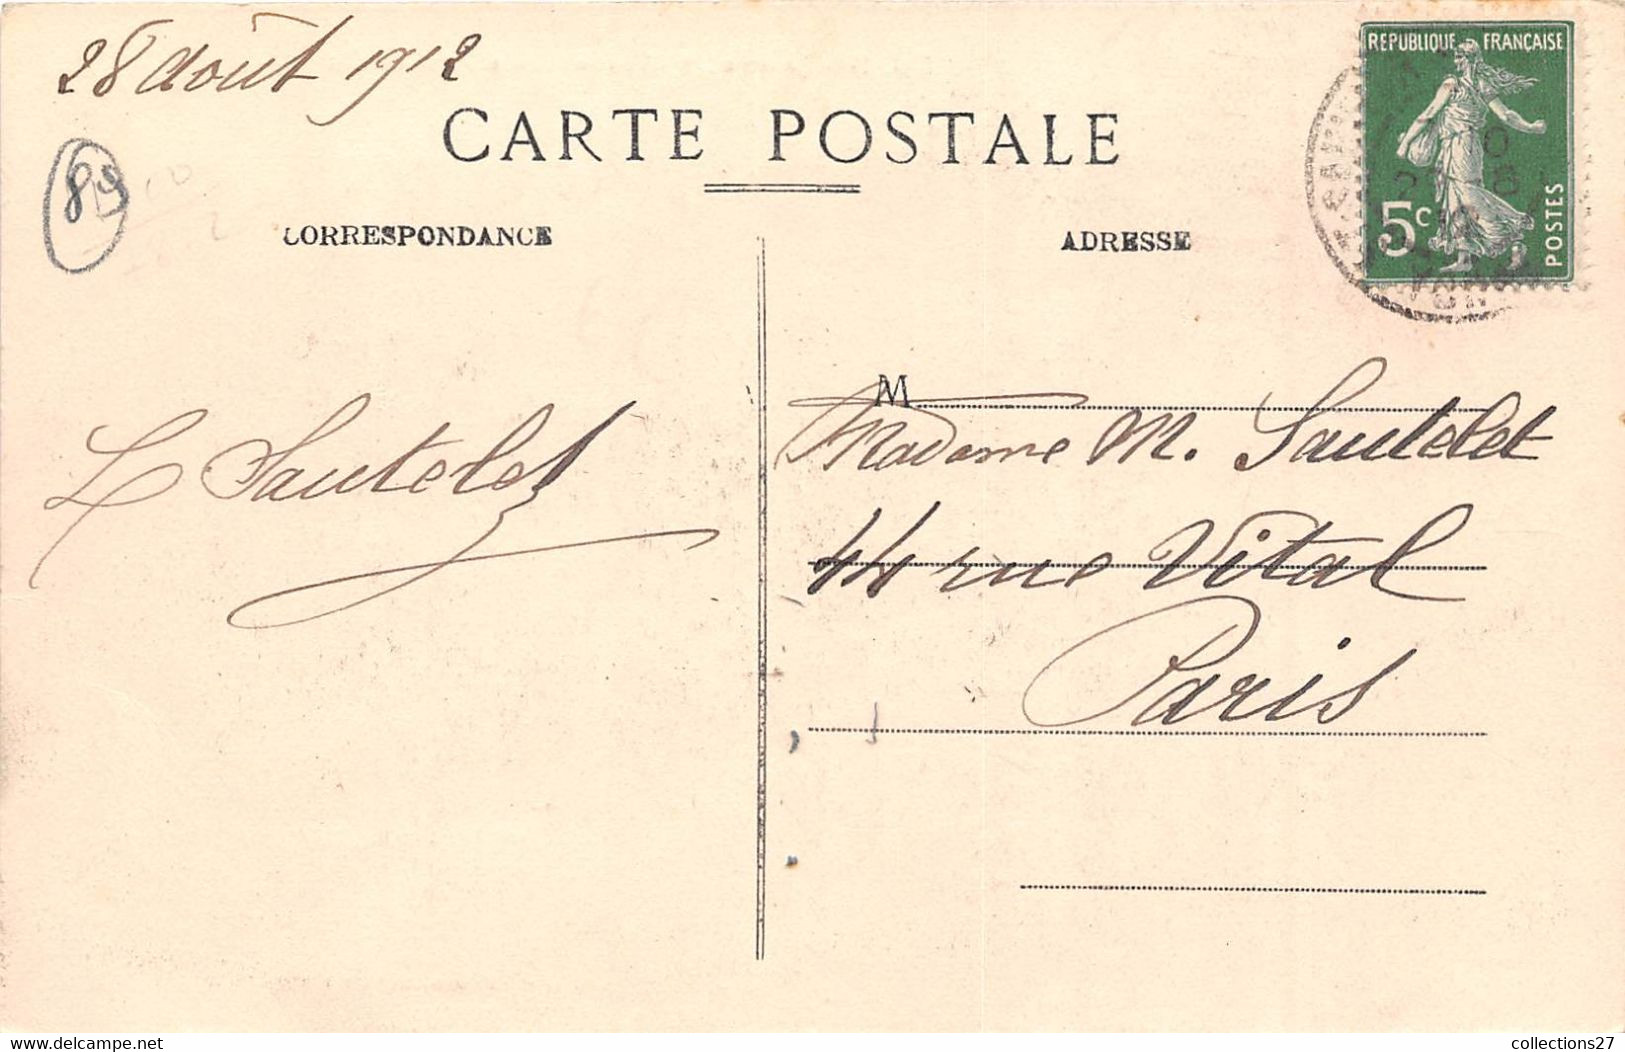 28 Août 1912
CARTE POSTALE
89
CORRESPONDANCE
ADRESSE
REPUBLIQUE FRANÇAISE
5c
POSTES
M
Madame M. Sautelet
L Sautelet
44 rue Vital
Paris
delcampe.net
collections27